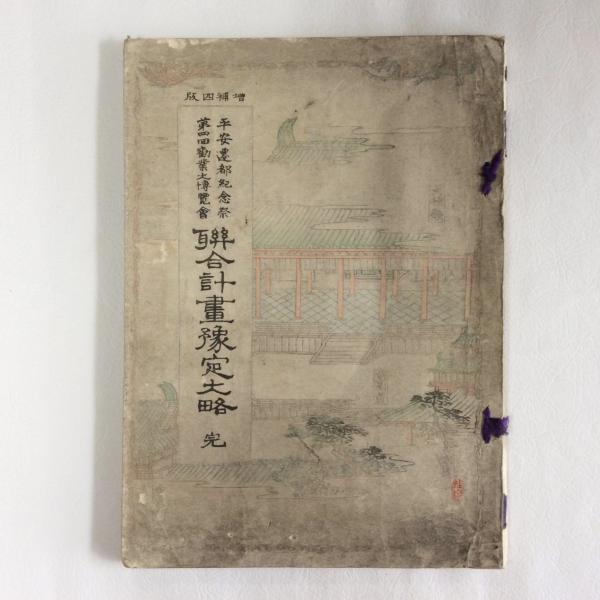 増補四版
平安遷都紀念祭
第四回勸業大博覽會
聯合計畫豫定大略 完